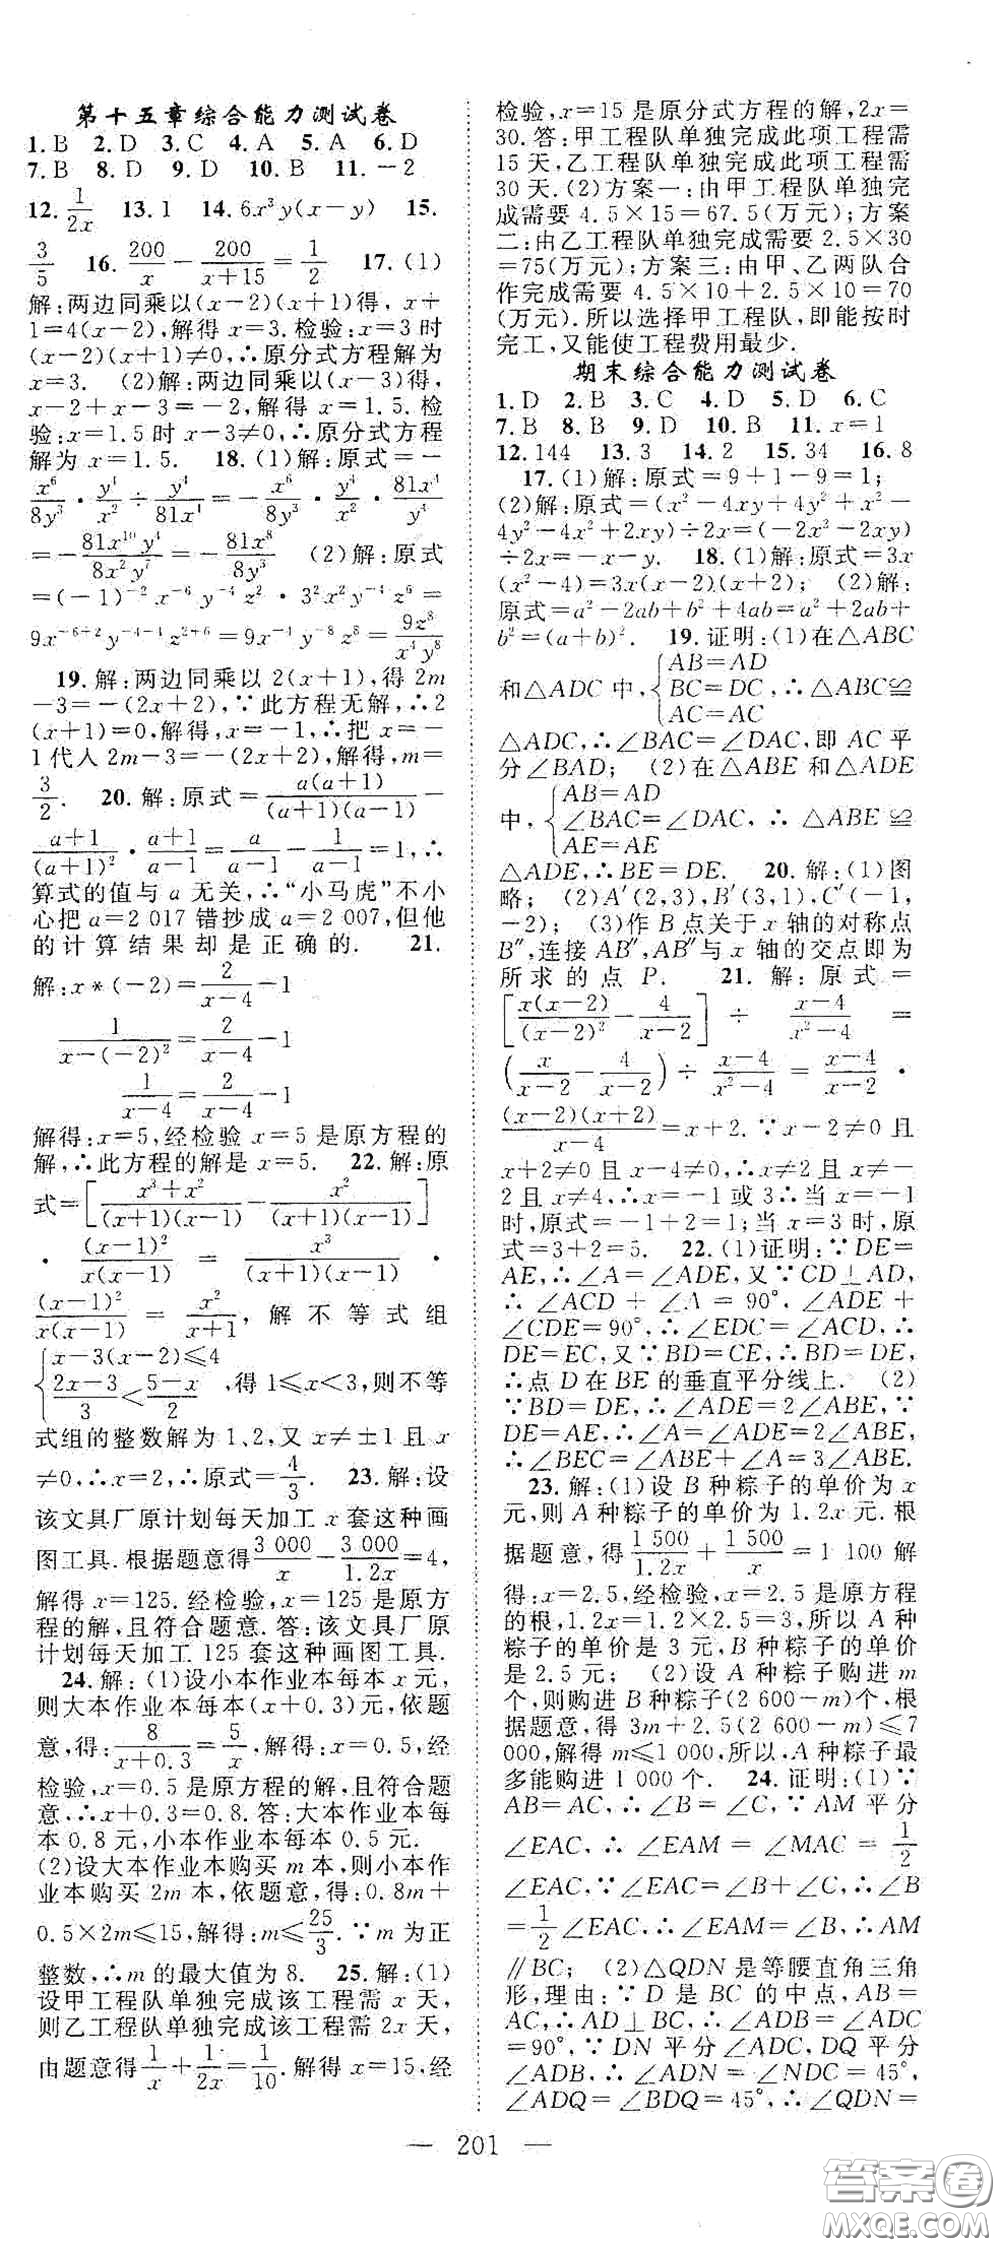 第十五章综合能力测试卷
1. B 2. D 3. C 4. A 5. A 6. D
7. B 8. D 9. D 10. B 11. －2
12. 1/(2x) 13. 1 14. 6x³y(x－y) 15.
3/5 16. 200/x － 200/(x＋15) ＝ 1/2 17. (1)
解:两边同乘以(x－2)(x＋1)得, x＋
1＝4(x－2),解得 x＝3.检验:x＝3 时
(x－2)(x＋1)≠0,∴原分式方程解为
x＝3. (2)解:两边同乘以(x－3)得,
x－2＋x－3＝－2,解得 x＝1.5.检
验:x＝1.5 时 x－3≠0,∴原分式方程
解为 x＝1.5. 18. (1)解:原式＝－
x⁶/(8y³) · y⁴/x² ÷ y⁴/(81x⁴) ＝－ x⁶/(8y³) · y⁴/x² · 81x⁴/y⁴
＝－ 81x¹⁰y⁴/(8x²y⁷) ＝－ 81x⁸/(8y³) (2)解:原式
＝(－1)⁻²x⁻⁶y⁻⁴z² · 3²x²y⁻⁴z⁶＝
9x⁻⁶⁺²y⁻⁴⁻⁴z²⁺⁶＝9x⁻⁴y⁻⁸z⁸＝ 9z⁸/(x⁴y⁸)
19. 解:两边同乘以 2(x＋1),得 2m
－3＝－(2x＋2),∵此方程无解,∴2
(x＋1)＝0,解得 x＝－1,∴把 x＝－
1代人 2m－3＝－(2x＋2),解得,m＝
3/2. 20. 解:原式＝ a(a＋1)/((a＋1)(a－1)) －
(a＋1)/(a＋1)² · (a＋1)/(a－1) ＝ a/(a－1) － 1/(a－1) ＝1,∴
算式的值与 a 无关,∴“小马虎”不小
心把 a＝2 017 错抄成 a＝2 007,但他
的计算结果却是正确的. 21.
解:x＊(－2)＝ 2/(x－4) －1
1/(x－(－2)²) ＝ 2/(x－4) －1
1/(x－4) ＝ 2/(x－4) －1
解得:x＝5,经检验 x＝5 是原方程的
解,∴此方程的解是 x＝5. 22. 解:原
式＝[(x³＋x²)/((x＋1)(x－1)) － x²/((x＋1)(x－1))]
· (x－1)²/(x(x－1)) ＝ x³/((x＋1)(x－1)) ·
(x－1)²/(x(x－1)) ＝ x²/(x＋1), 解不等式组
{x－3(x－2)≤4
(2x－3)/3＜(5－x)/2 ,得 1≤x＜3,则不等
式组的整数解为 1、2,又 x≠±1 且 x
≠0,∴x＝2,∴原式＝ 4/3. 23. 解:设
该文具厂原计划每天加工 x 套这种画
图工具.根据题意得 3 000/x － 3 000/(1.2x) ＝4,
解得 x＝125.经检验,x＝125 是原方
程的解,且符合题意.答:该文具厂原
计划每天加工 125 套这种画图工具.
24. 解:(1)设小本作业本每本 x 元,
则大本作业本每本(x＋0.3)元,依题
意,得: 8/(x＋0.3) ＝ 5/x ,解得:x＝0.5,经
检验,x＝0.5 是原方程的解,且符合题
意.∴x＋0.3＝0.8.答:大本作业本每
本 0.8 元,小本作业本每本 0.5 元.
(2)设大本作业本购买 m 本,则小本作
业本购买 2m 本,依题意,得:0.8m＋
0.5×2m≤15,解得:m≤ 25/3. ∵m 为正
整数,∴m 的最大值为 8. 25. 解:(1)
设甲工程队单独完成该工程需 x 天,
则乙工程队单独完成该工程需 2x 天,
由题意得 1/x ＋ 1/(2x) ＝ 1/10. 解得 x＝15,经
检验,x＝15 是原分式方程的解,2x＝
30.答:甲工程队单独完成此项工程需
15 天,乙工程队单独完成此项工程需
30 天.(2)方案一:由甲工程队单独完
成需要 4.5×15＝67.5(万元);方案
二:由乙工程队单独完成需要 2.5×30
＝75(万元);方案三:由甲、乙两队合
作完成需要 4.5×10＋2.5×10＝70
(万元).所以选择甲工程队,即能按时
完工,又能使工程费用最少.
期末综合能力测试卷
1. D 2. B 3. C 4. D 5. D 6. C
7. B 8. B 9. D 10. B 11. x＝1
12. 144 13. 3 14. 2 15. 34 16. 8
17. (1)解:原式＝9＋1－9＝1;
(2)解:原式＝(x²－4xy＋4y²＋x²－
4y²－4x²＋2xy)÷2x＝(－2x²－2xy)
÷2x＝－x－y. 18. (1)解:原式＝3x
(x²－4)＝3x(x－2)(x＋2); (2)解:
原式＝a²－2ab＋b²＋4ab＝a²＋2ab＋
b²＝(a＋b)². 19. 证明:(1)在△ABC
和△ADC 中,{AB＝AD
BC＝DC
AC＝AC ,∴△ABC≌
△ADC,∴∠BAC＝∠DAC,即 AC 平
分∠BAD; (2)在△ABE 和△ADE
中,{AB＝AD
∠BAC＝∠DAC
AE＝AE ,∴△ABE≌
△ADE,∴BE＝DE. 20. 解:(1)图
略; (2)A′(2,3),B′(3,1),C′(－1,
－2); (3)作 B 点关于 x 轴的对称点
B″,连接 AB″,AB″与 x 轴的交点即为
所求的点 P. 21. 解:原式＝
[x(x－2)/(x－2)² － 4/(x－2)] ÷ (x－4)/(x²－4) ＝
(x/(x－2) － 4/(x－2)) ÷ (x－4)/(x²－4) ＝ (x－4)/(x－2) ·
(x－2)(x＋2)/(x－4) ＝x＋2. ∵x－2≠0 且
x＋2≠0 且 x－4≠0,∴x≠2 且 x≠－
2 且 x≠4,∴x＝－1 或 3∴当 x＝－1
时,原式＝－1＋2＝1;当 x＝3 时,原
式＝3＋2＝5. 22. (1)证明:∵DE＝
AE,∴∠A＝∠ADE,又∵CD⊥AD,
∴∠ACD＋∠A＝90°,∠ADE＋
∠CDE＝90°,∴∠EDC＝∠ACD,∴
DE＝EC,又∵BD＝CE,∴BD＝DE,
∴点 D 在 BE 的垂直平分线上. (2)
∵BD＝DE,∴∠ADE＝2∠ABE,∵
DE＝AE,∴∠A＝∠ADE＝2∠ABE,
∴∠BEC＝∠ABE＋∠A＝3∠ABE.
23. 解:(1)设 B 种粽子的单价为 x
元,则 A 种粽子的单价为 1.2x 元.根
据题意,得 1 500/(1.2x) ＋ 1 500/x ＝1 100 解
得:x＝2.5,经检验,x＝2.5 是原方程
的根,1.2x＝1.2×2.5＝3,所以 A 种
粽子的单价是 3 元,B 种粽子的单价
是 2.5 元; (2)设 A 种粽子购进 m
个,则购进 B 种粽子(2 600－m)个,根
据题意,得 3m＋2.5(2 600－m)≤7
000,解得 m≤1 000,所以,A 种粽子最
多能购进 1 000 个. 24. 证明:(1)∵
AB＝AC,∴∠B＝∠C,∵AM 平分
∠EAC,∴∠EAM＝∠MAC＝ 1/2
∠EAC,∵∠EAC＝∠B＋∠C,∴∠B
＝ 1/2 ∠EAC,∴∠EAM＝∠B,∴AM
∥BC; (2)△QDN 是等腰直角三角
形,理由:∵D 是 BC 的中点,AB＝
AC,∴AD⊥BC,∴∠ADB＝∠ADC
＝90°,∵DN 平分∠ADC,DQ 平分
∠ADB,∴∠ADN＝∠NDC＝45°,
∠ADQ＝∠BDQ＝45°,∴∠QDN＝
— 201 —
答案圈
MXQE.COM